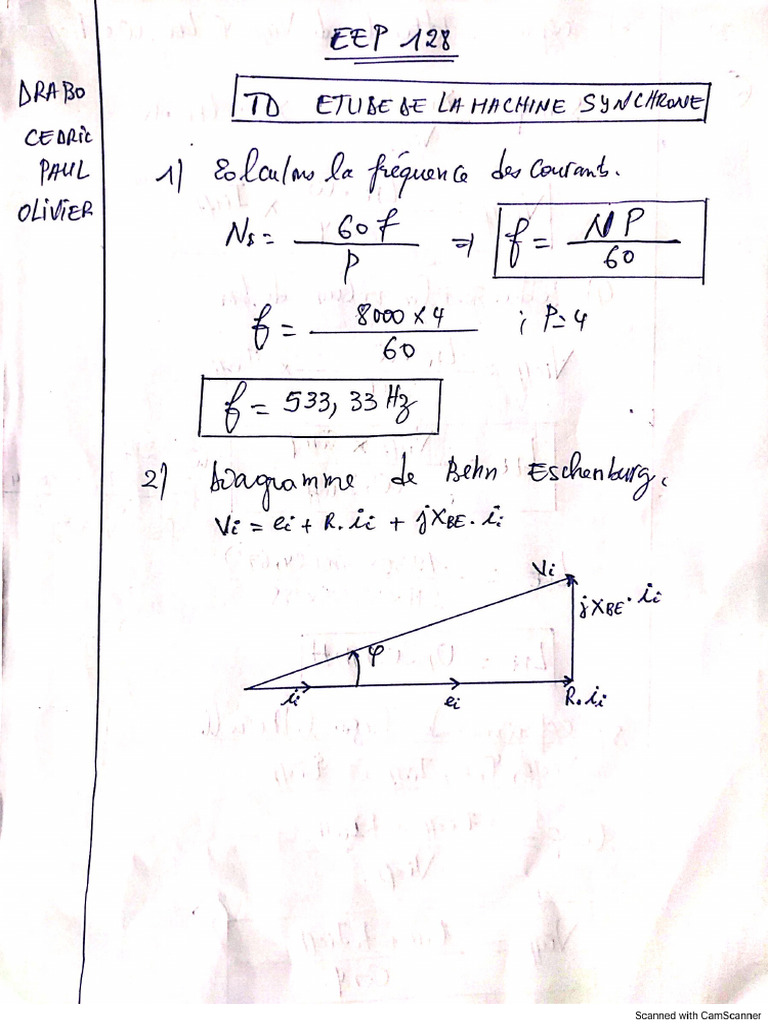 EEP 128
DRABO
CEDRIC
PAUL
OLIVIER
TD ETUDE DE LA MACHINE SYNCHRONE
1) Calculons la fréquence des courants.
Ns = 60 f / P ⇒ f = N P / 60
f = 8000 × 4 / 60 ; P = 4
f = 533,33 Hz
2) Diagramme de Behn Eschenburg.
Vi = ei + R.ii + jXBE.ii
Vi
jXBE.ii
φ
ii
ei
R.ii
Scanned with CamScanner